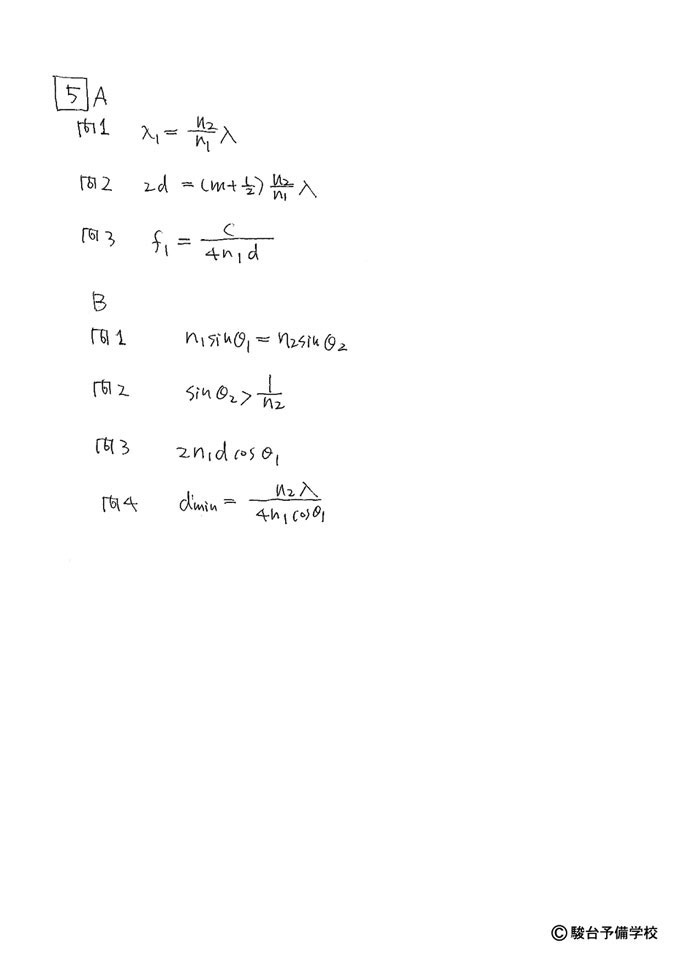 5 A
問1 λ₁ = n₂/n₁ λ
問2 2d = (m+1/2) n₂/n₁ λ
問3 f₁ = c/4n₁d
B
問1 n₁sinθ₁ = n₂sinθ₂
問2 sinθ₂ > 1/n₂
問3 2n₁d cosθ₁
問4 dmin = n₂λ/4n₁cosθ₁
©駿台予備学校